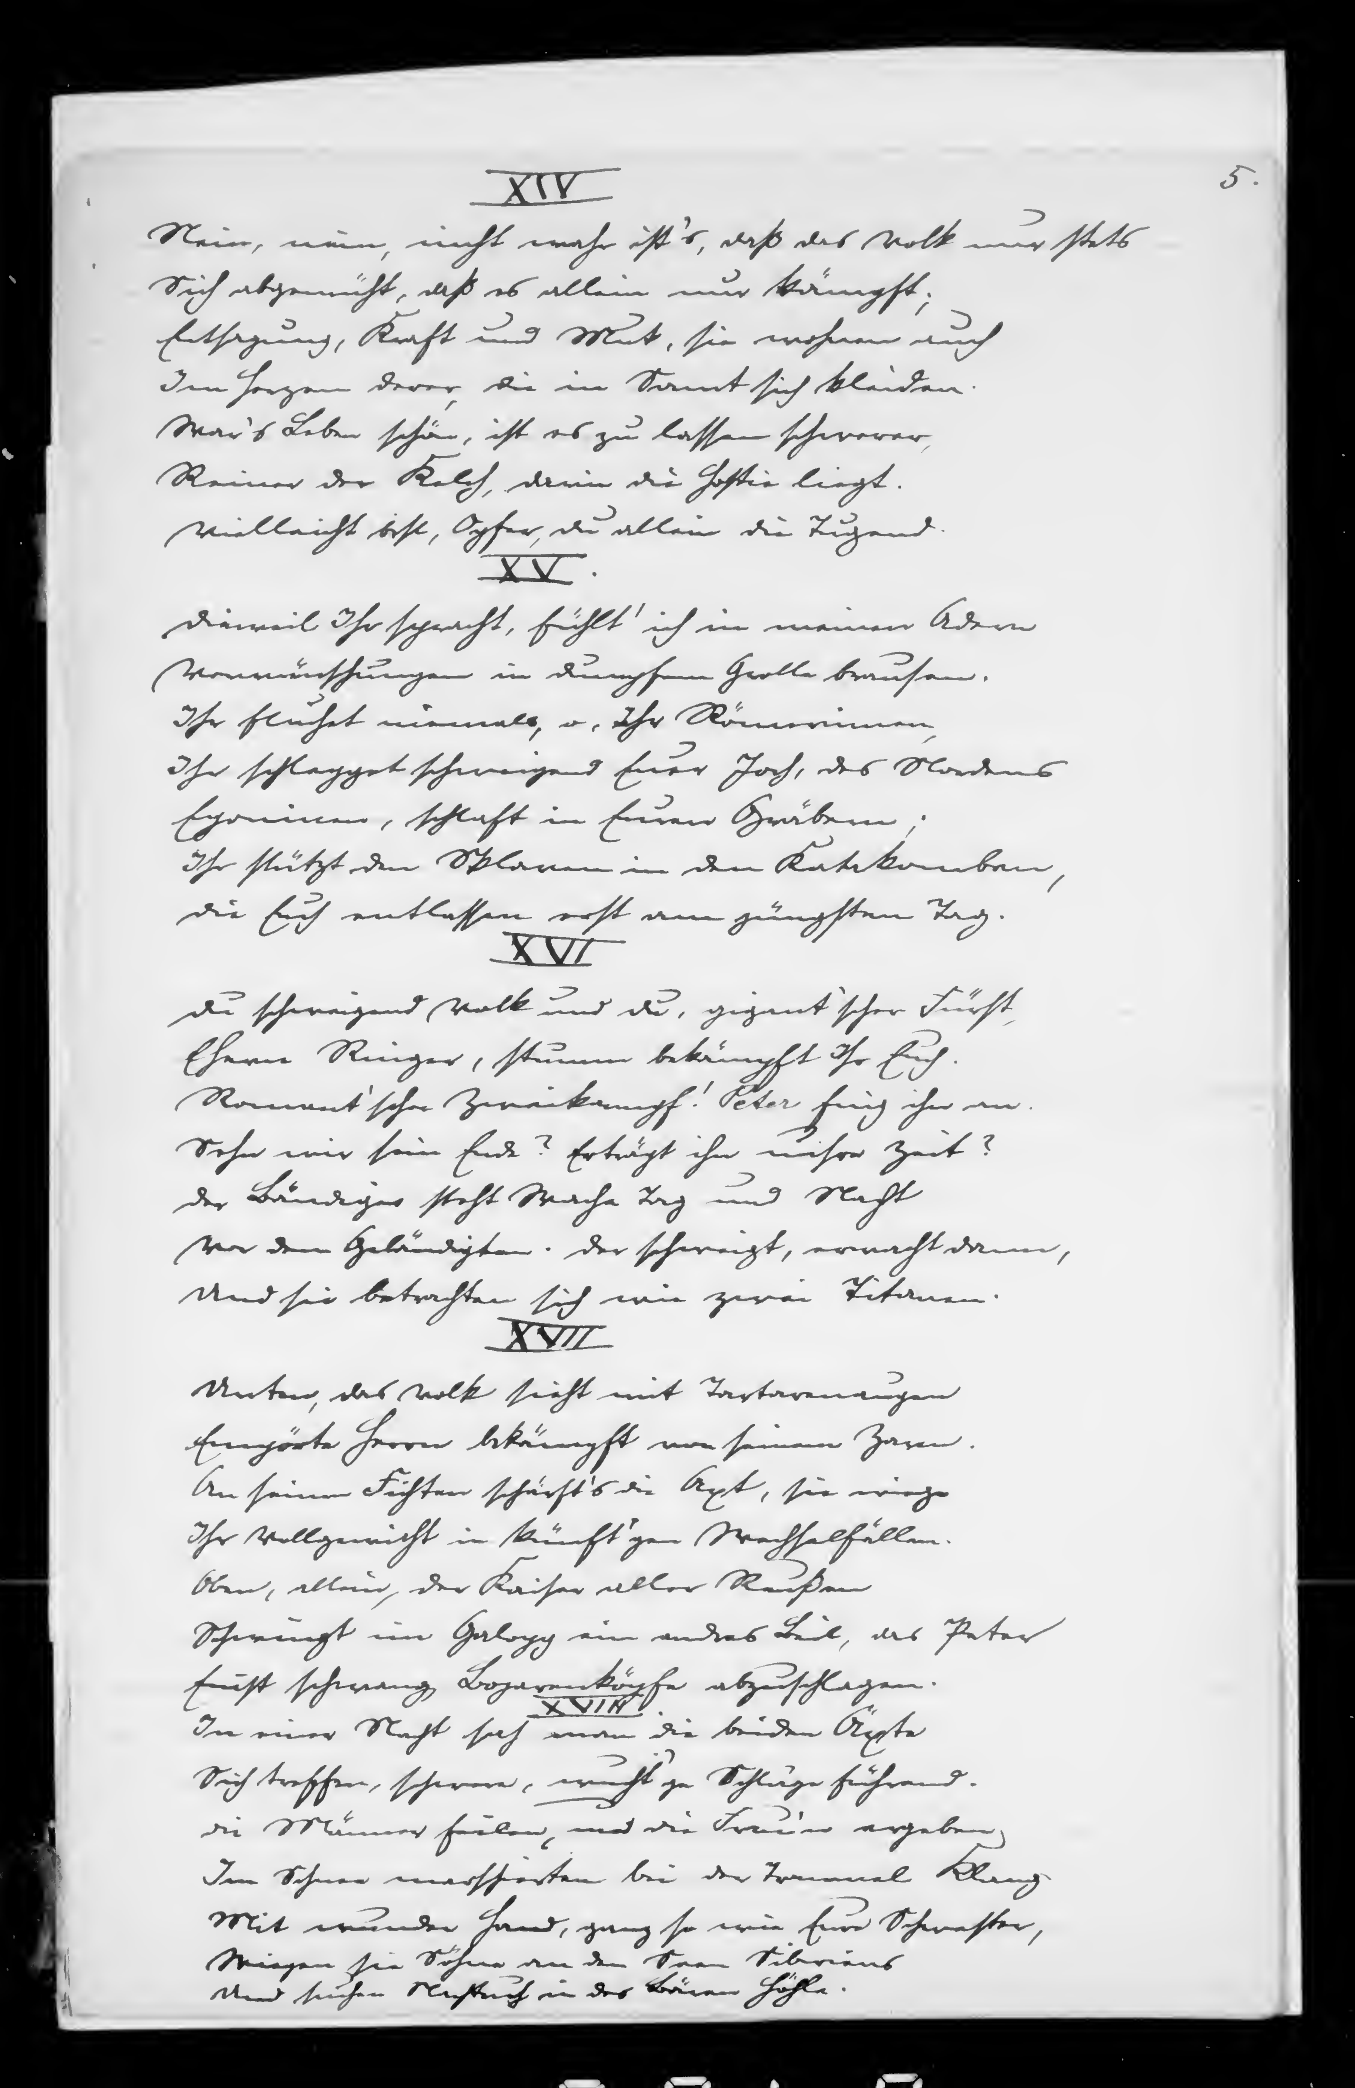 5.
XIV
Nein, nein, nicht wahr ist's, daß das Volk nur stets
Sich abgemüht, daß es allein nur kämpft;
Entsagung, Kraft und Mut, sie wohnen auch
Im Herzen derer, die in Samt sich kleiden.
War's Leben schön, ist es zu lassen schwerer,
Reiner der Kelch, darin die Hostie liegt.
Vielleicht bist, Opfer, du allein die Tugend.
XV.
Dieweil Ihr spracht, fühlt' ich in meinen Adern
Verwünschungen in dumpfem Grolle brausen.
Ihr fluchet niemals, o, Ihr Römerinnen,
Ihr schleppet schweigend Euer Joch, des Nordens
Eponinen, schlaft in Euren Gräbern;
Ihr stützt den Sklaven in den Katakomben,
Die Euch entlassen erst am jüngsten Tag.
XVI
Du schweigend Volk und du, gigant'scher Fürst,
Ehern Ringer, stumm bekämpft Ihr Euch.
Romant'scher Zweikampf! Peter fing ihn an.
Sehn wir sein Ende? Erträgt ihn unsre Zeit?
Der Bändiger steht Wache Tag und Nacht
Vor dem Gebändigten. Der schweigt, erwacht dann,
Und sie betrachten sich wie zwei Titanen.
XVII
Unten, das Volk sieht mit Tartarenaugen
Empörte Herrn bekämpft von seinem Zaren.
An seinen Fichten schärft's die Axt, sie wiege
Ihr Vollgewicht in künft'gen Wechselfällen.
Oben, allein, der Kaiser aller Reußen
Schwingt im Galopp ein andres Beil, das Peter
Einst schwang, Bojarenköpfe abzuschlagen.
XVIII
In einer Nacht sah man die beiden Äxte
Sich treffen, schwere, wucht'ge Schläge führend.
Die Männer fielen, und die Frau'n ergeben,
Im Schnee marschierten bei der Trommel Klang
Mit wunder Hand, ganz so wie Eure Schwester,
Wiegen sie Söhne an den Seen Sibiriens
Und suchen in des Bären Höhle.